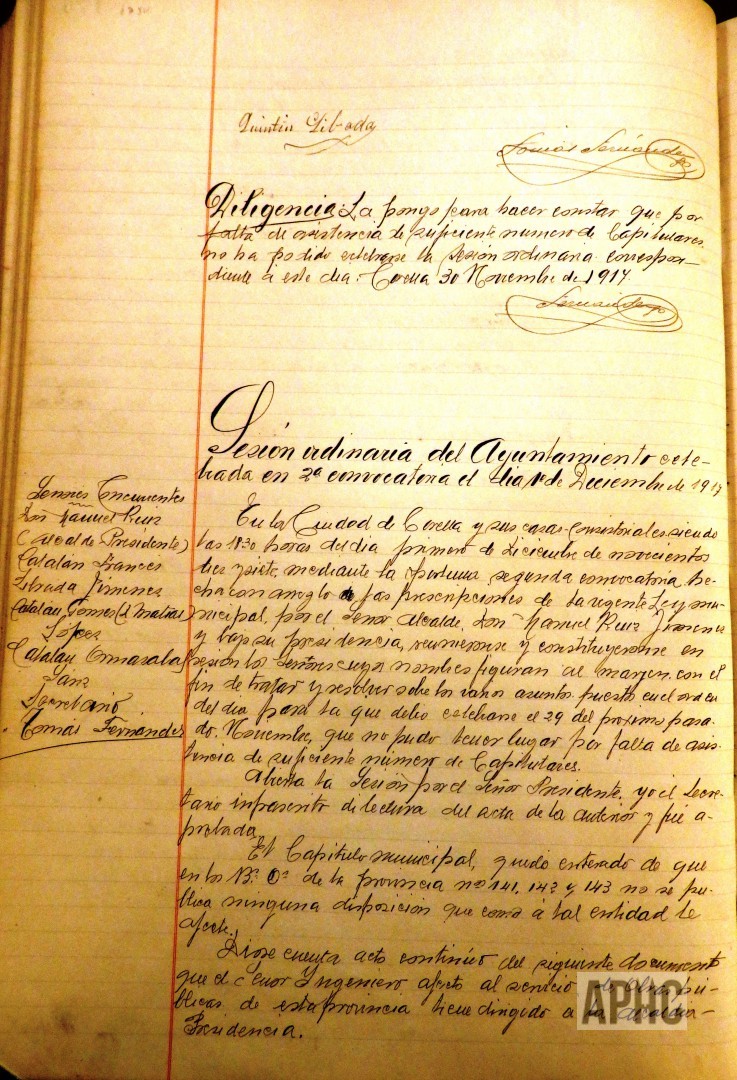 Quintin Libada
Tomás Fernández
Diligencia: La pongo para hacer constar que por
falta de asistencia de suficiente numero de Capitulares
no ha podido celebrarse la Sesión ordinaria correspon-
diente á este dia. Corella 30 Noviembre de 1917
Fernández
Sesión ordinaria del Ayuntamiento cele-
brada en 2ª convocatoria el dia 1º de Diciembre de 1917
Señores Concurrentes
Don Manuel Ruiz
(Alcalde Presidente)
Catalán Frances
Librada Jimenez
Catalan Gomes (d Matias)
López
Catalán
Sanz
Secretario
Tomás Fernández
En la Ciudad de Corella y sus casas Consistoriales siendo
las 18'30 horas del dia primero de Diciembre de novecientos
diez y siete, mediante la oportuna segunda convocatoria he-
cha con arreglo a las prescripciones de la vigente Ley mu-
nicipal, por el Señor Alcalde, Don Manuel Ruiz Jimenez
y bajo su presidencia, reunieronse y constituyeronse en
sesión los Señores cuyos nombres figuran al margen con el
fin de tratar y resolver sobre los varios asuntos puestos en el orden
del dia para la que debio celebrarse el 29 del proximo pasa-
do Noviembre, que no pudo tener lugar por falta de asis-
tencia de suficiente número de Capitulares.
Abierta la Sesión por el Señor Presidente, yo el Secre-
tario infrascrito di lectura del acta de la anterior y fué a-
probada.
El Capitulo municipal, quedó enterado de que
en los B.s O.s de la provincia nos 141, 142 y 143 no se pu-
blica ninguna disposición que como á tal entidad le
afecte.
Diose cuenta acto continuo del siguiente documento
que el Señor Yngeniero afecto al servicio de Obras pú-
blicas de esta provincia tiene dirigido a la Alcaldia-
Presidencia.
APHC